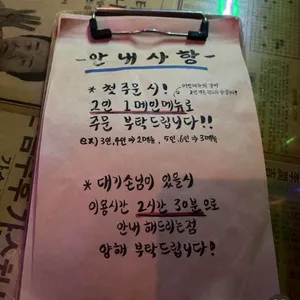 -안내사항-
* 첫 주문 시!
2인 1메인메뉴로
주문 부탁드립니다!!
3인, 4인 → 2메뉴, 5인, 6인 → 3메뉴
* 대기손님이 있을시
이용시간 2시간 30분으로
안내 해드리는점
양해 부탁드립니다!